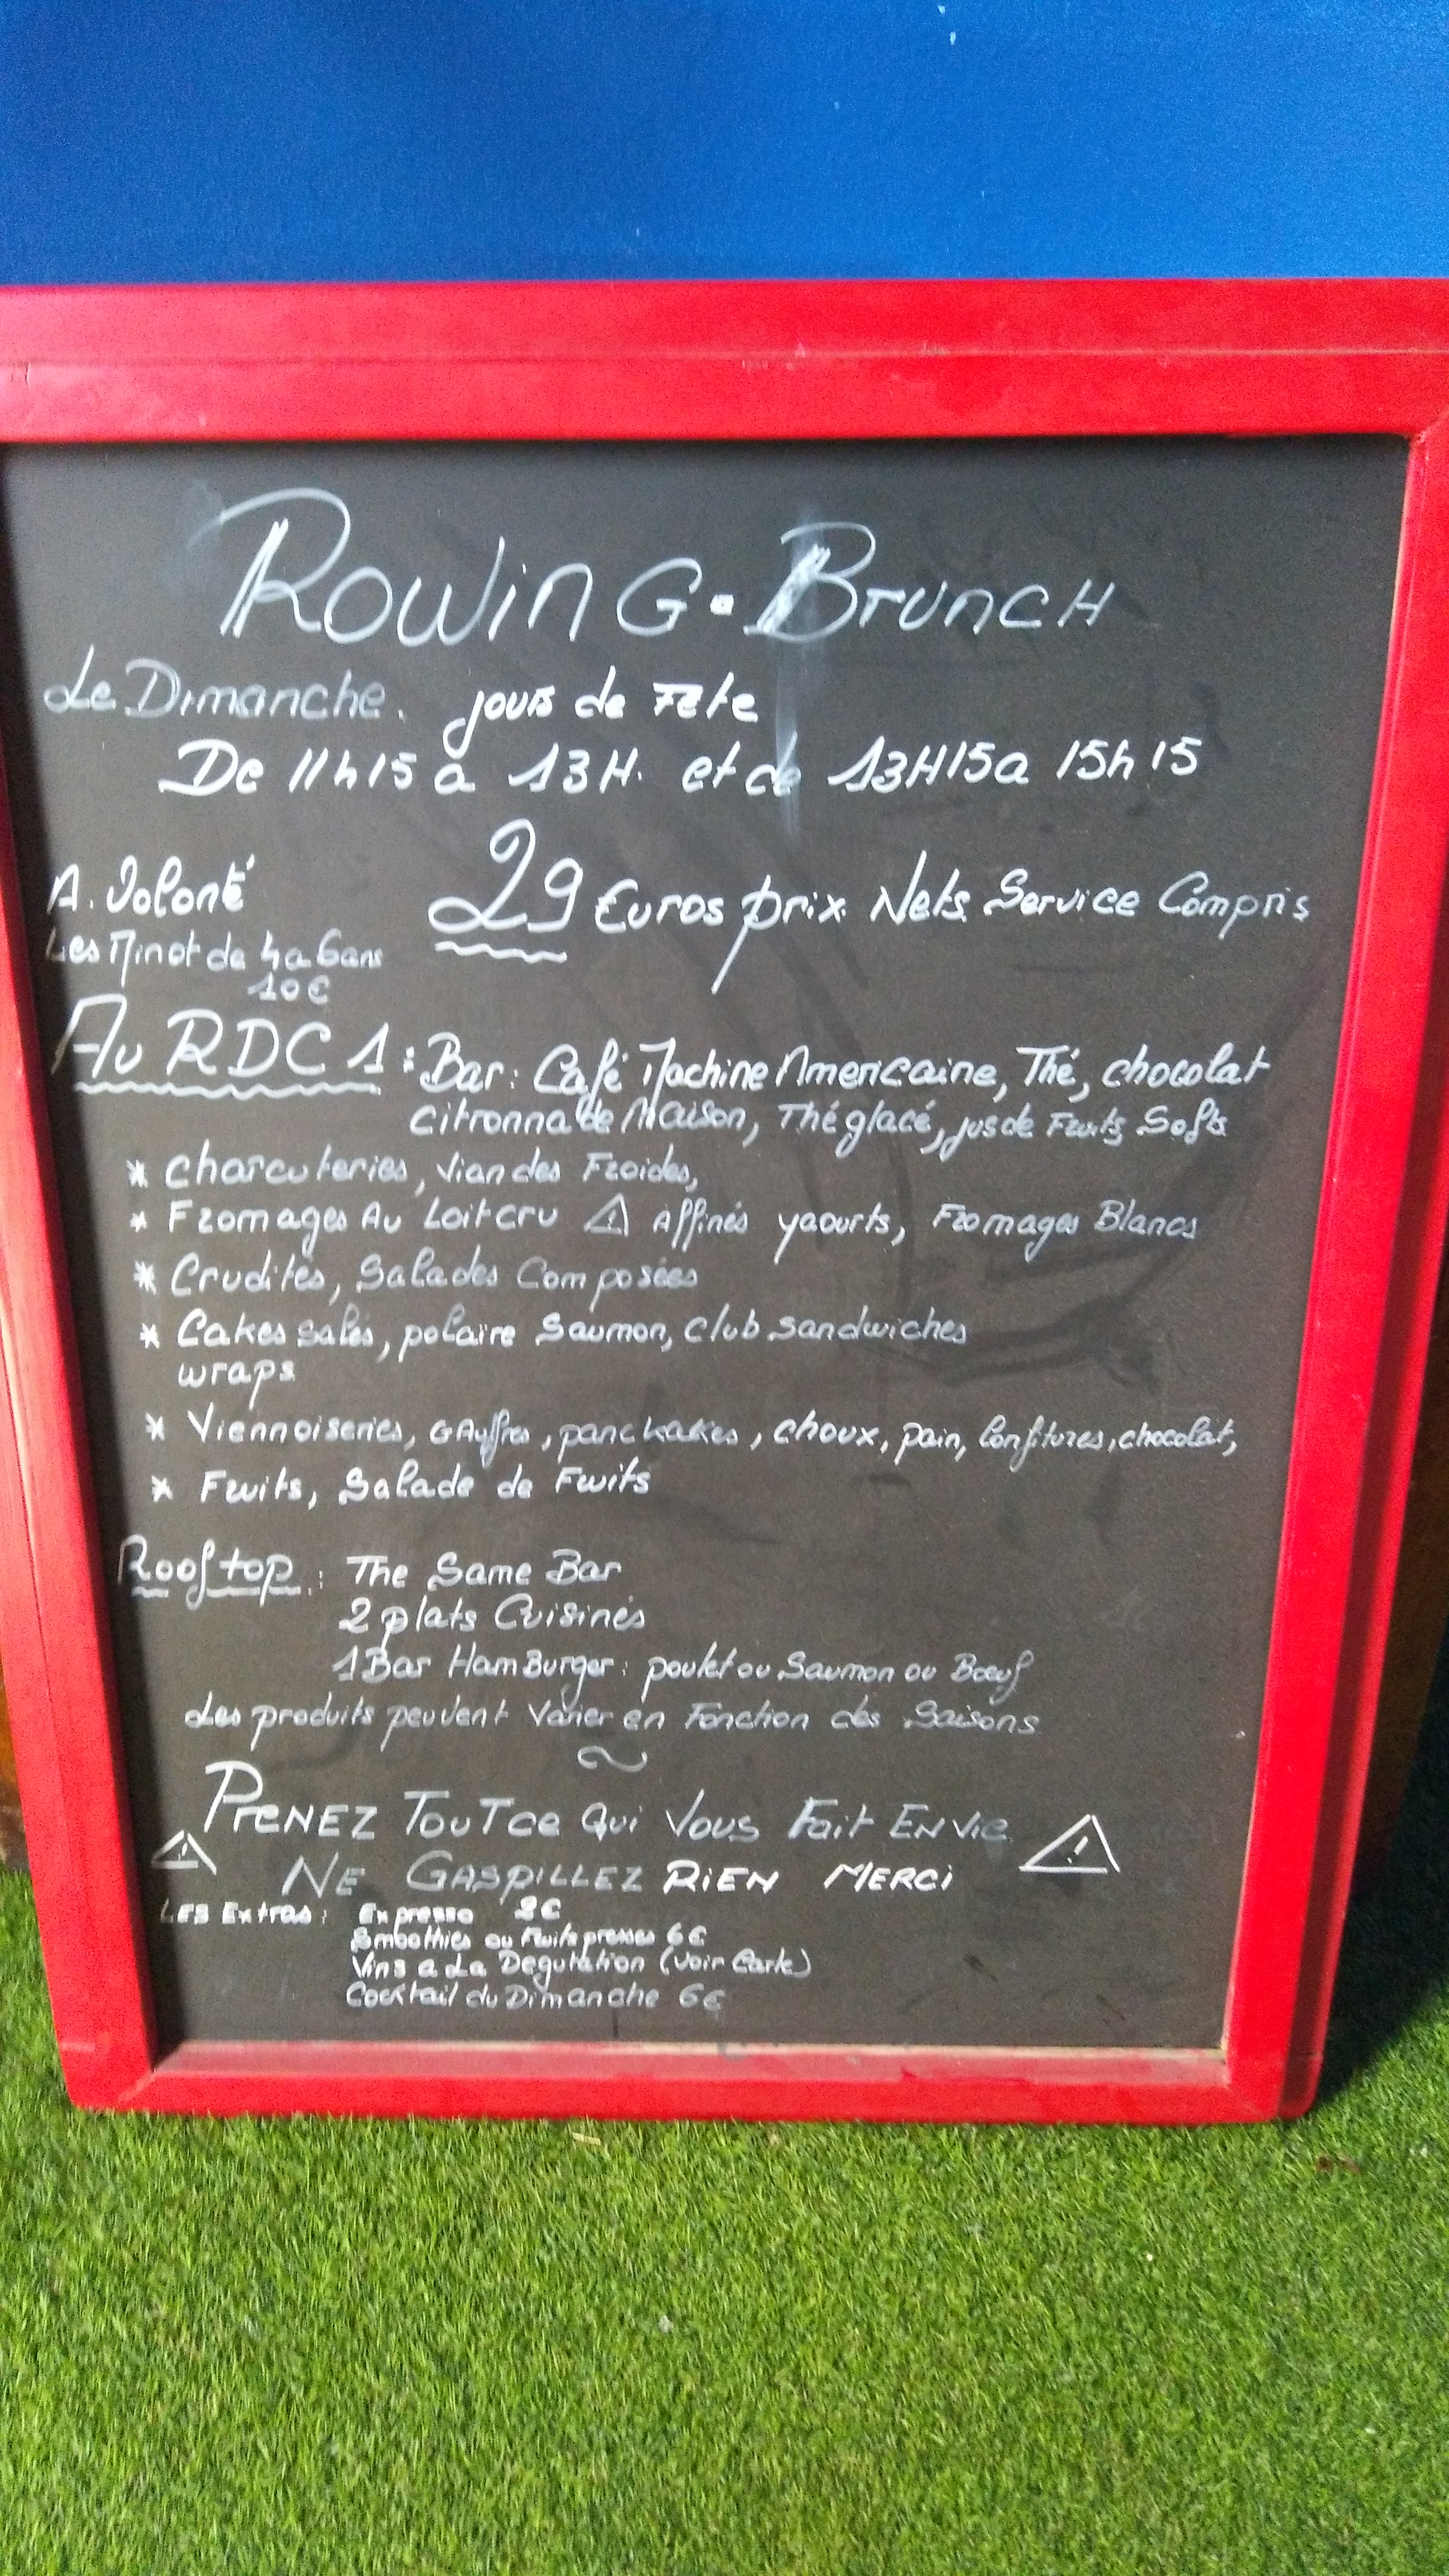 ROWING-BRUNCH
Le Dimanche. jours de Fête
De 11h15 a 13H. et de 13H15 a 15h15
A. Volonté 29 Euros prix Nets Service Compris
Les Minot de 4 a 6 ans
10€
Au RDC 1 : Bar : Café Machine Americaine, Thé, chocolat
citronnade Maison, Thé glacé, jus de Fruits, Softs
* Charcuteries, Viandes Froides,
* Fromages Au Lait cru ⚠ Affinés yaourts, Fromages Blancs
* Crudités, Salades Composées
* Cakes salés, polaire Saumon, club sandwiches
wraps
* Viennoiseries, GAuffres, panckakes, choux, pain, Confitures, chocolat,
* Fruits, Salade de Fruits
Rooftop : The Same Bar
2 plats Cuisinés
1 Bar HamBurger : poulet ou Saumon ou Bœuf
Les produits peuvent Varier en Fonction des Saisons
~
PreNEZ TouT ce Qui Vous Fait ENvie
⚠ NE GASPILLEZ RiEN MERCi ⚠
LES Extras : Expresso 2€
Smoothies ou Fruits presses 6€
Vins a La Degutation (Voir Carte)
Cocktail du Dimanche 6€